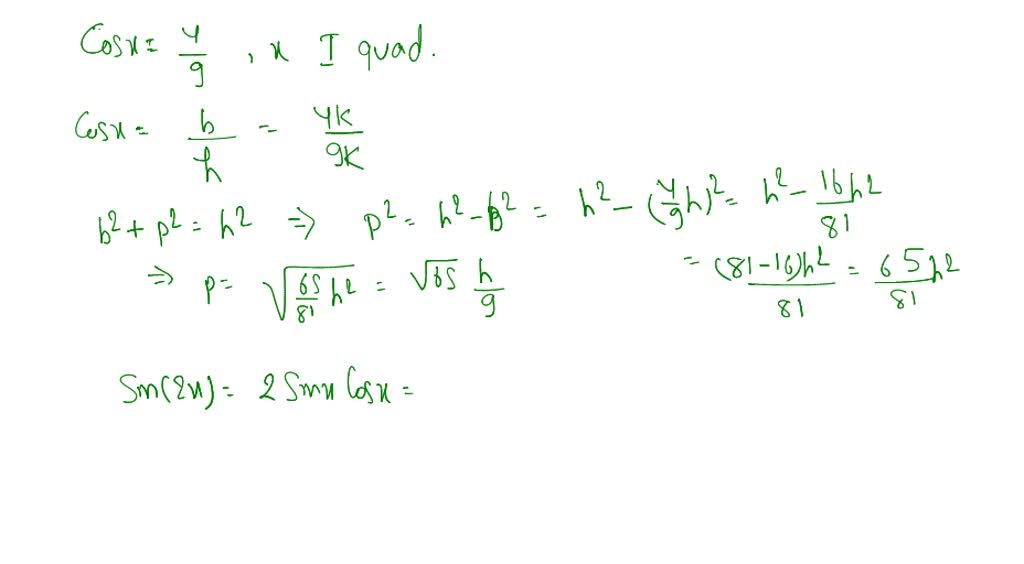 Cosx = 4/9 , x I quad.
Cosx = b/h = 4K/9K
b² + p² = h² ⇒ p² = h² - b² = h² - (4/9 h)² = h² - 16h²/81
= (81-16)h²/81 = 65/81 h²
⇒ p = √(65/81 h²) = √65 h/9
Sin(2x) = 2 Sinx Cosx =